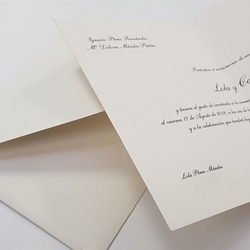 Ignacio Pérez Fernández
Mª Dolores Méndez Pulido
Participan el
Lola y
y tienen el gusto de invitarle a la
el viernes 17 de Agosto de 2018, a las
y a la celebración que tendrá lugar
Lola Pérez Méndez